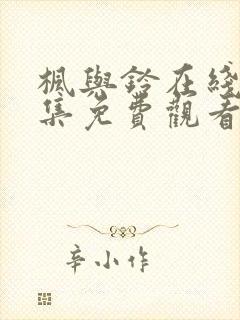 楓與鈴在綫
集免費觀看
辛小作